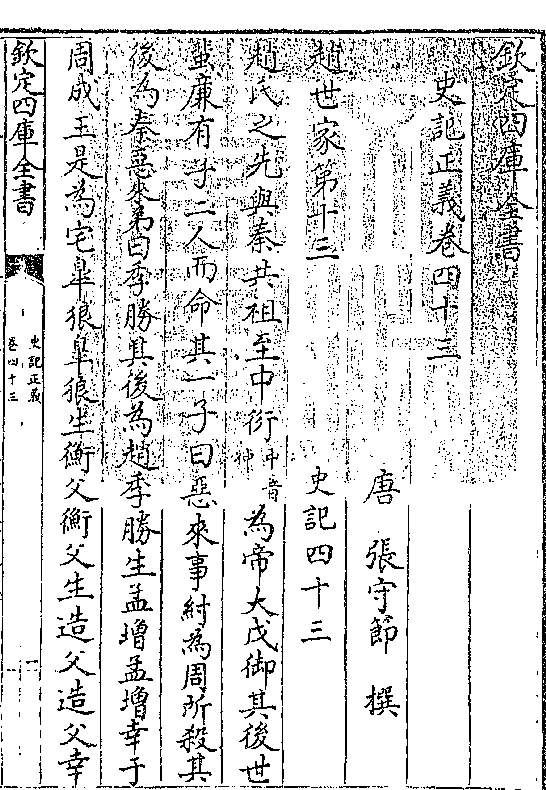 欽定四庫全書
史記正義卷四十三
唐　張守節　撰
趙世家第十三　史記四十三
趙氏之先與秦共祖至中衍中音仲為帝大戊御其後世
蜚廉有子二人而命其一子曰惡來事紂為周所殺其
後為秦惡來弟曰季勝其後為趙季勝生孟增孟增幸于
周成王是為宅皐狼皐狼生衡父衡父生造父造父幸
欽定四庫全書
史記正義
卷四十三
一